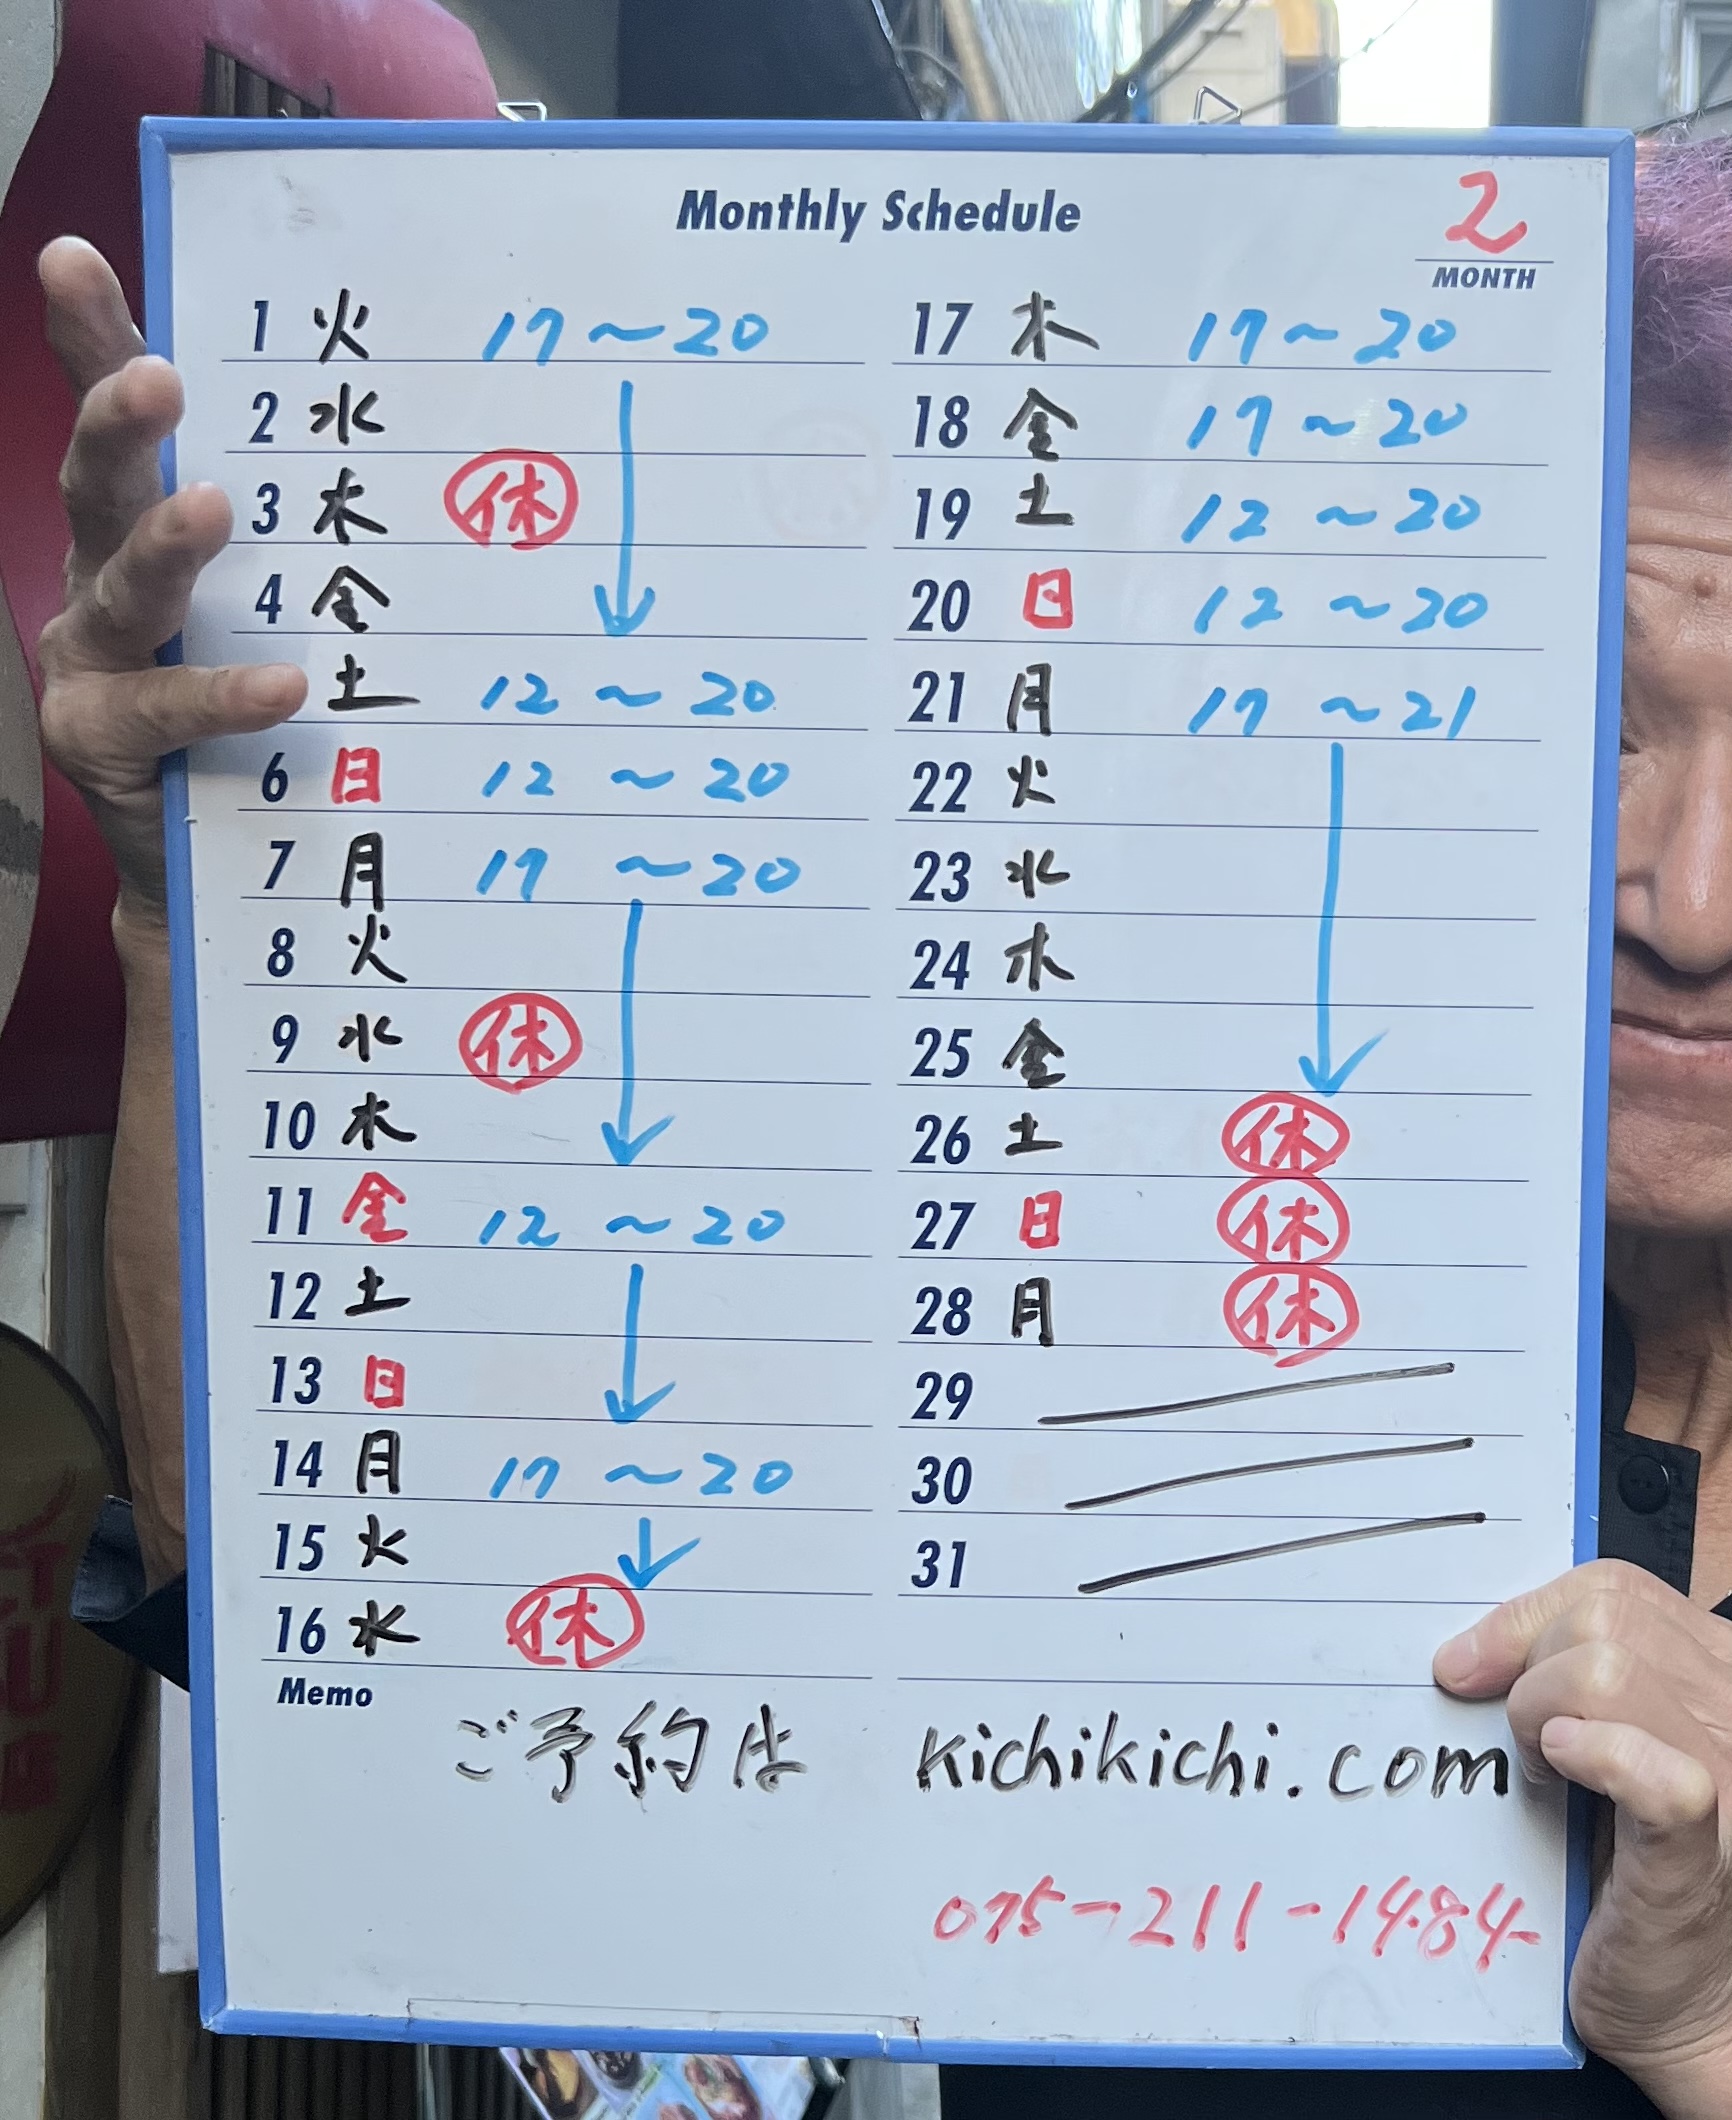 Monthly Schedule
2
MONTH
1 火 17〜20
2 水
3 木 休
4 金
土 12〜20
6 日 12〜20
7 月 17〜20
8 火
9 水 休
10 木
11 金 12〜20
12 土
13 日
14 月 17〜20
15 火
16 水 休
17 木 17〜20
18 金 17〜20
19 土 12〜20
20 日 12〜20
21 月 17〜21
22 火
23 水
24 木
25 金
26 土 休
27 日 休
28 月 休
29
30
31
Memo
ご予約は kichikichi.com
075-211-1484